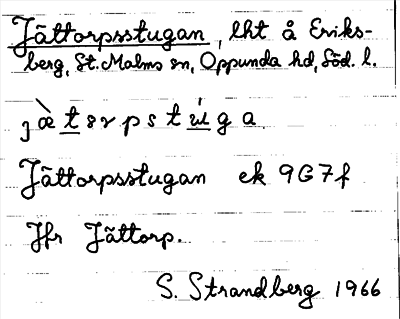 Jättorpsstugan, lht å Eriks-
berg, St. Malms sn, Oppunda hd, Söd. l.
jὰtɜrpstúga
Jättorpsstugan ek 9G7f
Jfr Jättorp.
S. Strandberg 1966